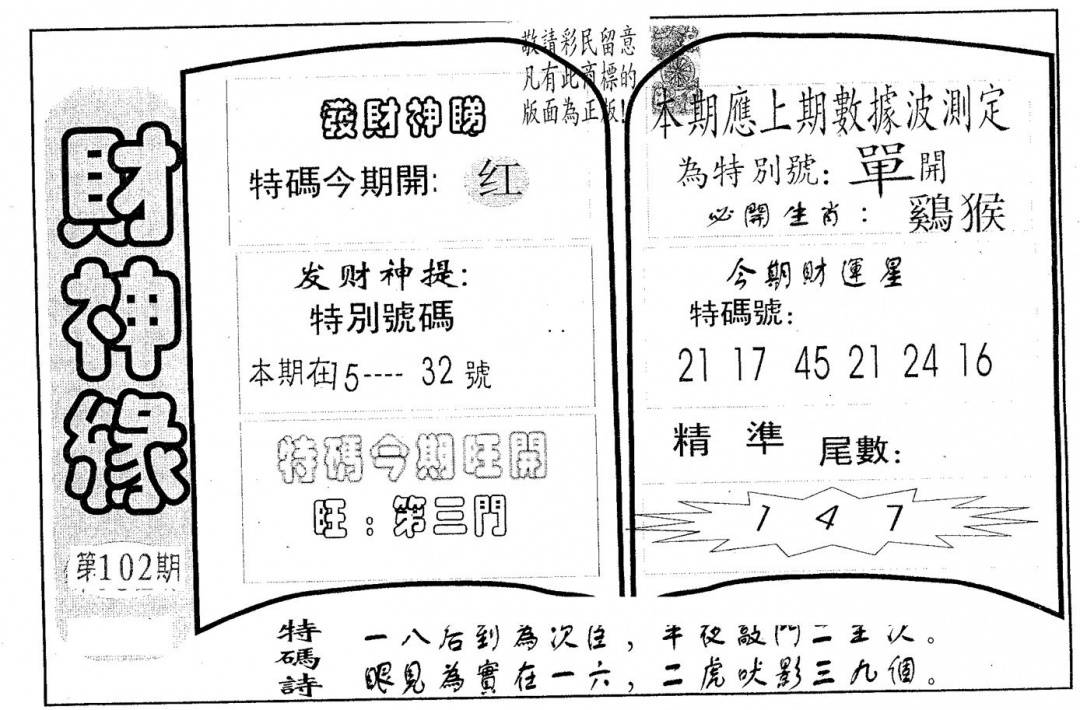 敬請彩民留意
凡有此商標的
版面為正版!
財神緣
第102期
發財神睇
特碼今期開: 红
发财神提:
特別號碼
本期在15---- 32號
特碼今期旺開
旺:第三門
本期應上期數據波測定
為特別號: 單開
必開生肖: 鷄猴
今期財運星
特碼號:
21 17 45 21 24 16
精準 尾數:
1 4 7
特碼詩
一八后到為次住,半夜敲門二至次。
眼見為實在一六,二虎吠影三九個。